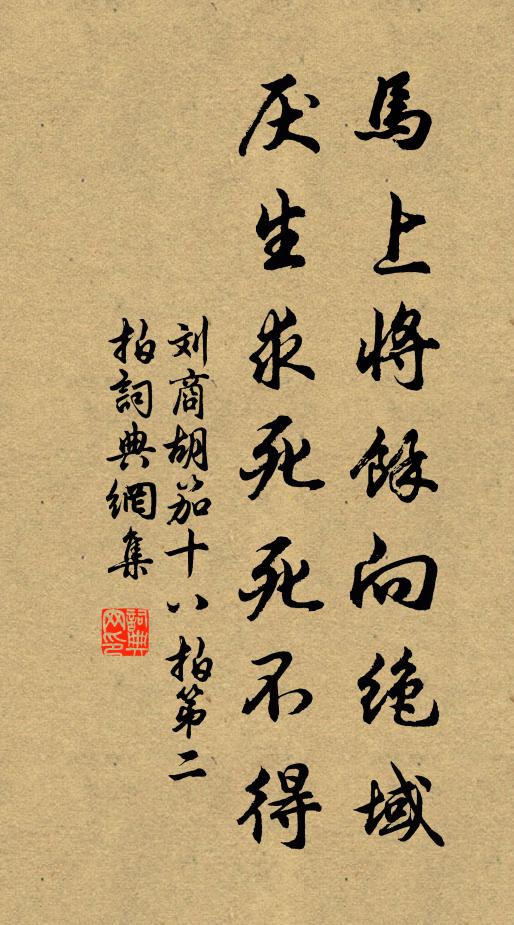 馬上將餘向絶域
厌生求死死不得
刘商胡笳十八拍第二
拍詞典網集
詞典网印